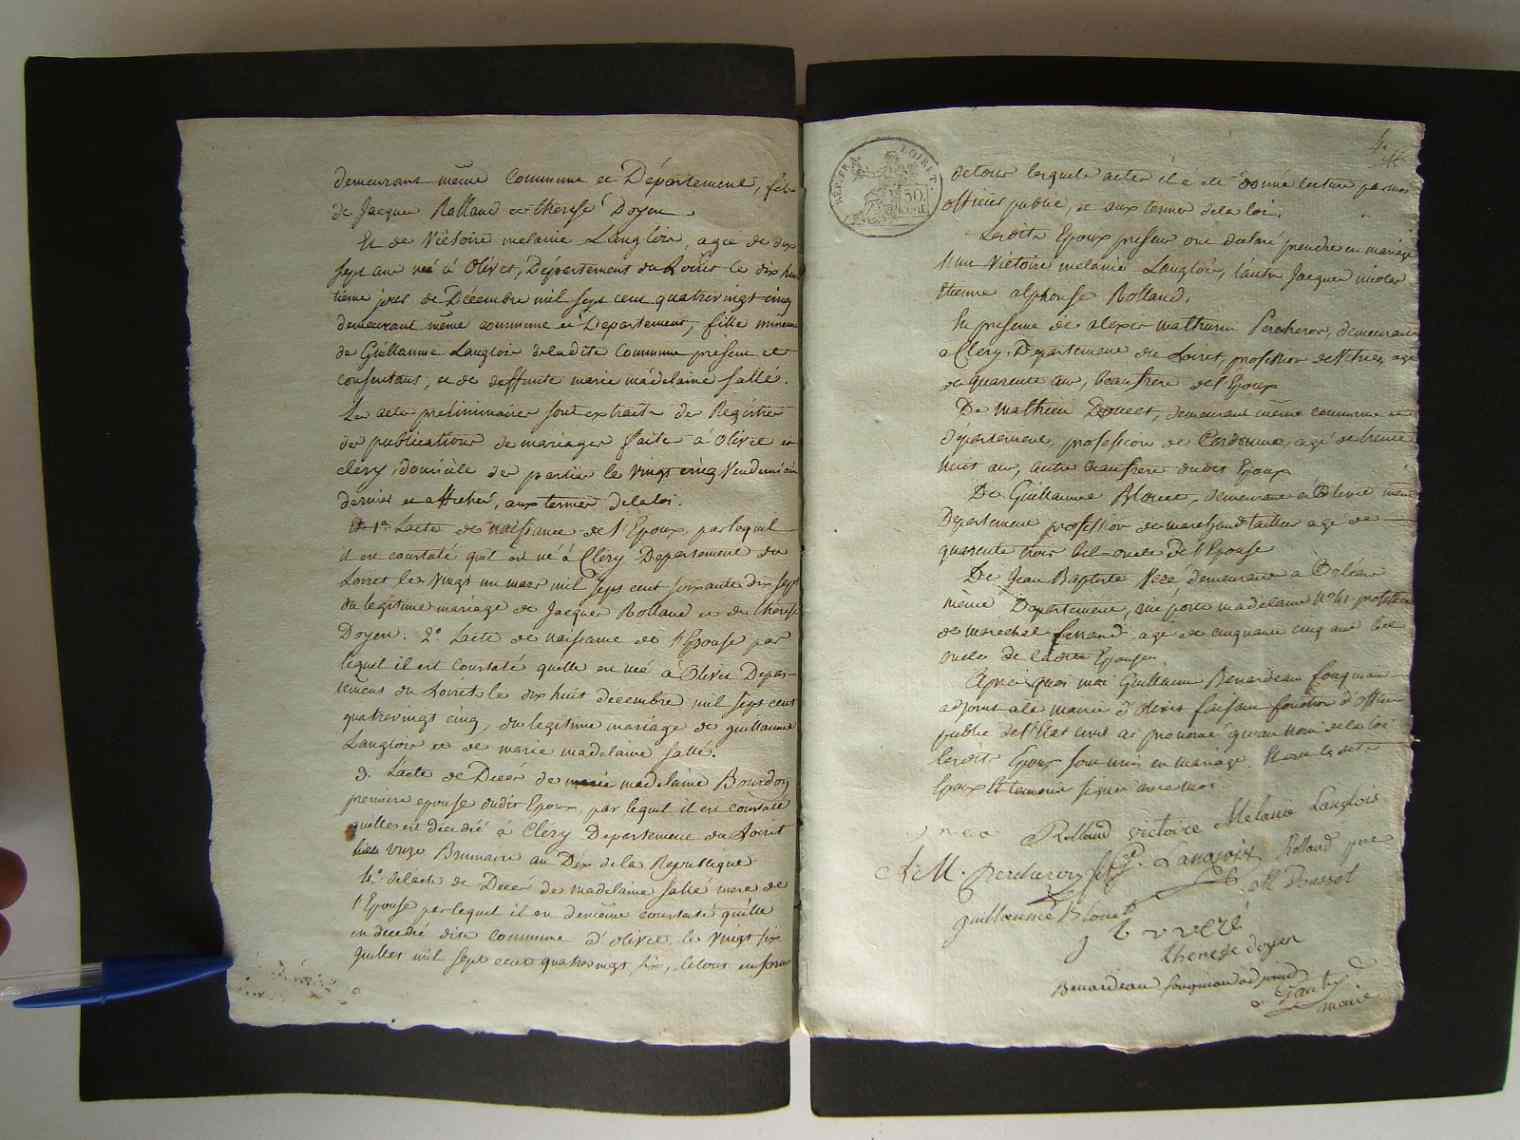 demeurant même Commune et Département, fils
de Jacque Rolland et therese Doyen.
Et de Victoire melanie Langlois, agée de dix
sept ans née à Olivet, Département du Loiret le dix hui
tieme jour de Décembre mil sept cent quatrevingt cinq
demeurant même commune et Departement, fille mineure
de Guillaume Langlois deladite Commune présent et
consentant, et de deffunte marie madelaine sallé.
Les actes préliminaires sont extraits des Registres
des publications de mariages faites à Olivet et
clery, domicile des parties le vingt cinq Vendemiaire
dernier et affichés, aux termes dela loi.
1º Lacte de naissance de l'Epoux, par lequel
il est constaté quil est né à Cléry Departement du
Loiret le vingt un mars mil sept cent soixante dix sept
du legitime mariage de Jacque Rolland et de therese
Doyen. 2º Lacte de naissance de l'Epouse par
lequel il est constaté quelle est née à Olivet Depar-
tement du Loiret le dix huit décembre mil sept cent
quatrevingt cinq, du legitime mariage de guillaume
Langlois et de marie madelaine sallé.
3. Lacte de Décès de marie madelaine Bourdon
premiere epouse dudit Epoux, par lequel il est constaté
quelle est décédée à Cléry Departement du Loiret
le onze Brumaire an Dix de la Republique
4º delacte de Décès de madelaine sallé mere de
l'Epouse par lequel il est demême constaté qu'elle
est decedée dite Commune d'olivet le vingt six
juillet mil sept cent quatrevingt six, le tout en forme
REP. FRA. LOIRET.
50
de tous lesquels actes il a été donné lecture par moi
officier public, et aux termes dela loi.
Lesdits Epoux presens ont declaré prendre en mariage
l'un Victoire melanie Langlois, l'autre Jacque nicolas
Etienne alphonse Rolland,
En presence de alexis mathurin Percheron, demeurant
a Clery, Departement du Loiret, profession de , agé
de quarante ans, beaufrere de l'Epoux
De mathieu Doucet, demeurant même commune et
département, profession de Cordonnier, agé de trente
huit ans, autre beaufrere dudit Epoux
De Guillaume Blouet, demeurant à Olivet même
Departement profession de marchand tailleur agé de
quarante trois bel-oncle de l'Epouse
De Jean Baptiste Vezé demeurant à Orléans
même Departement, rue porte madelaine nº 61 profession
de marechal ferrand agé de cinquante cinq ans bel
oncle de ladite Epouse.
Après quoi moi Guillaume Benardeau fougnon
adjoint ala mairie d'olivet faisant fonction d'officier
public de l'Etat civil ai prononcé qu'au nom de la loi
lesdits Epoux sont unis en mariage. Et ont lesdits
Epoux et temoins signé avec moi
Rolland victoire Melanie Langlois
A. M. Percheron Langlois Rolland pere
M Doucet
guillaume Blouet
J b vezé
therese doyen
Benardeau fougnon adjoint
maire